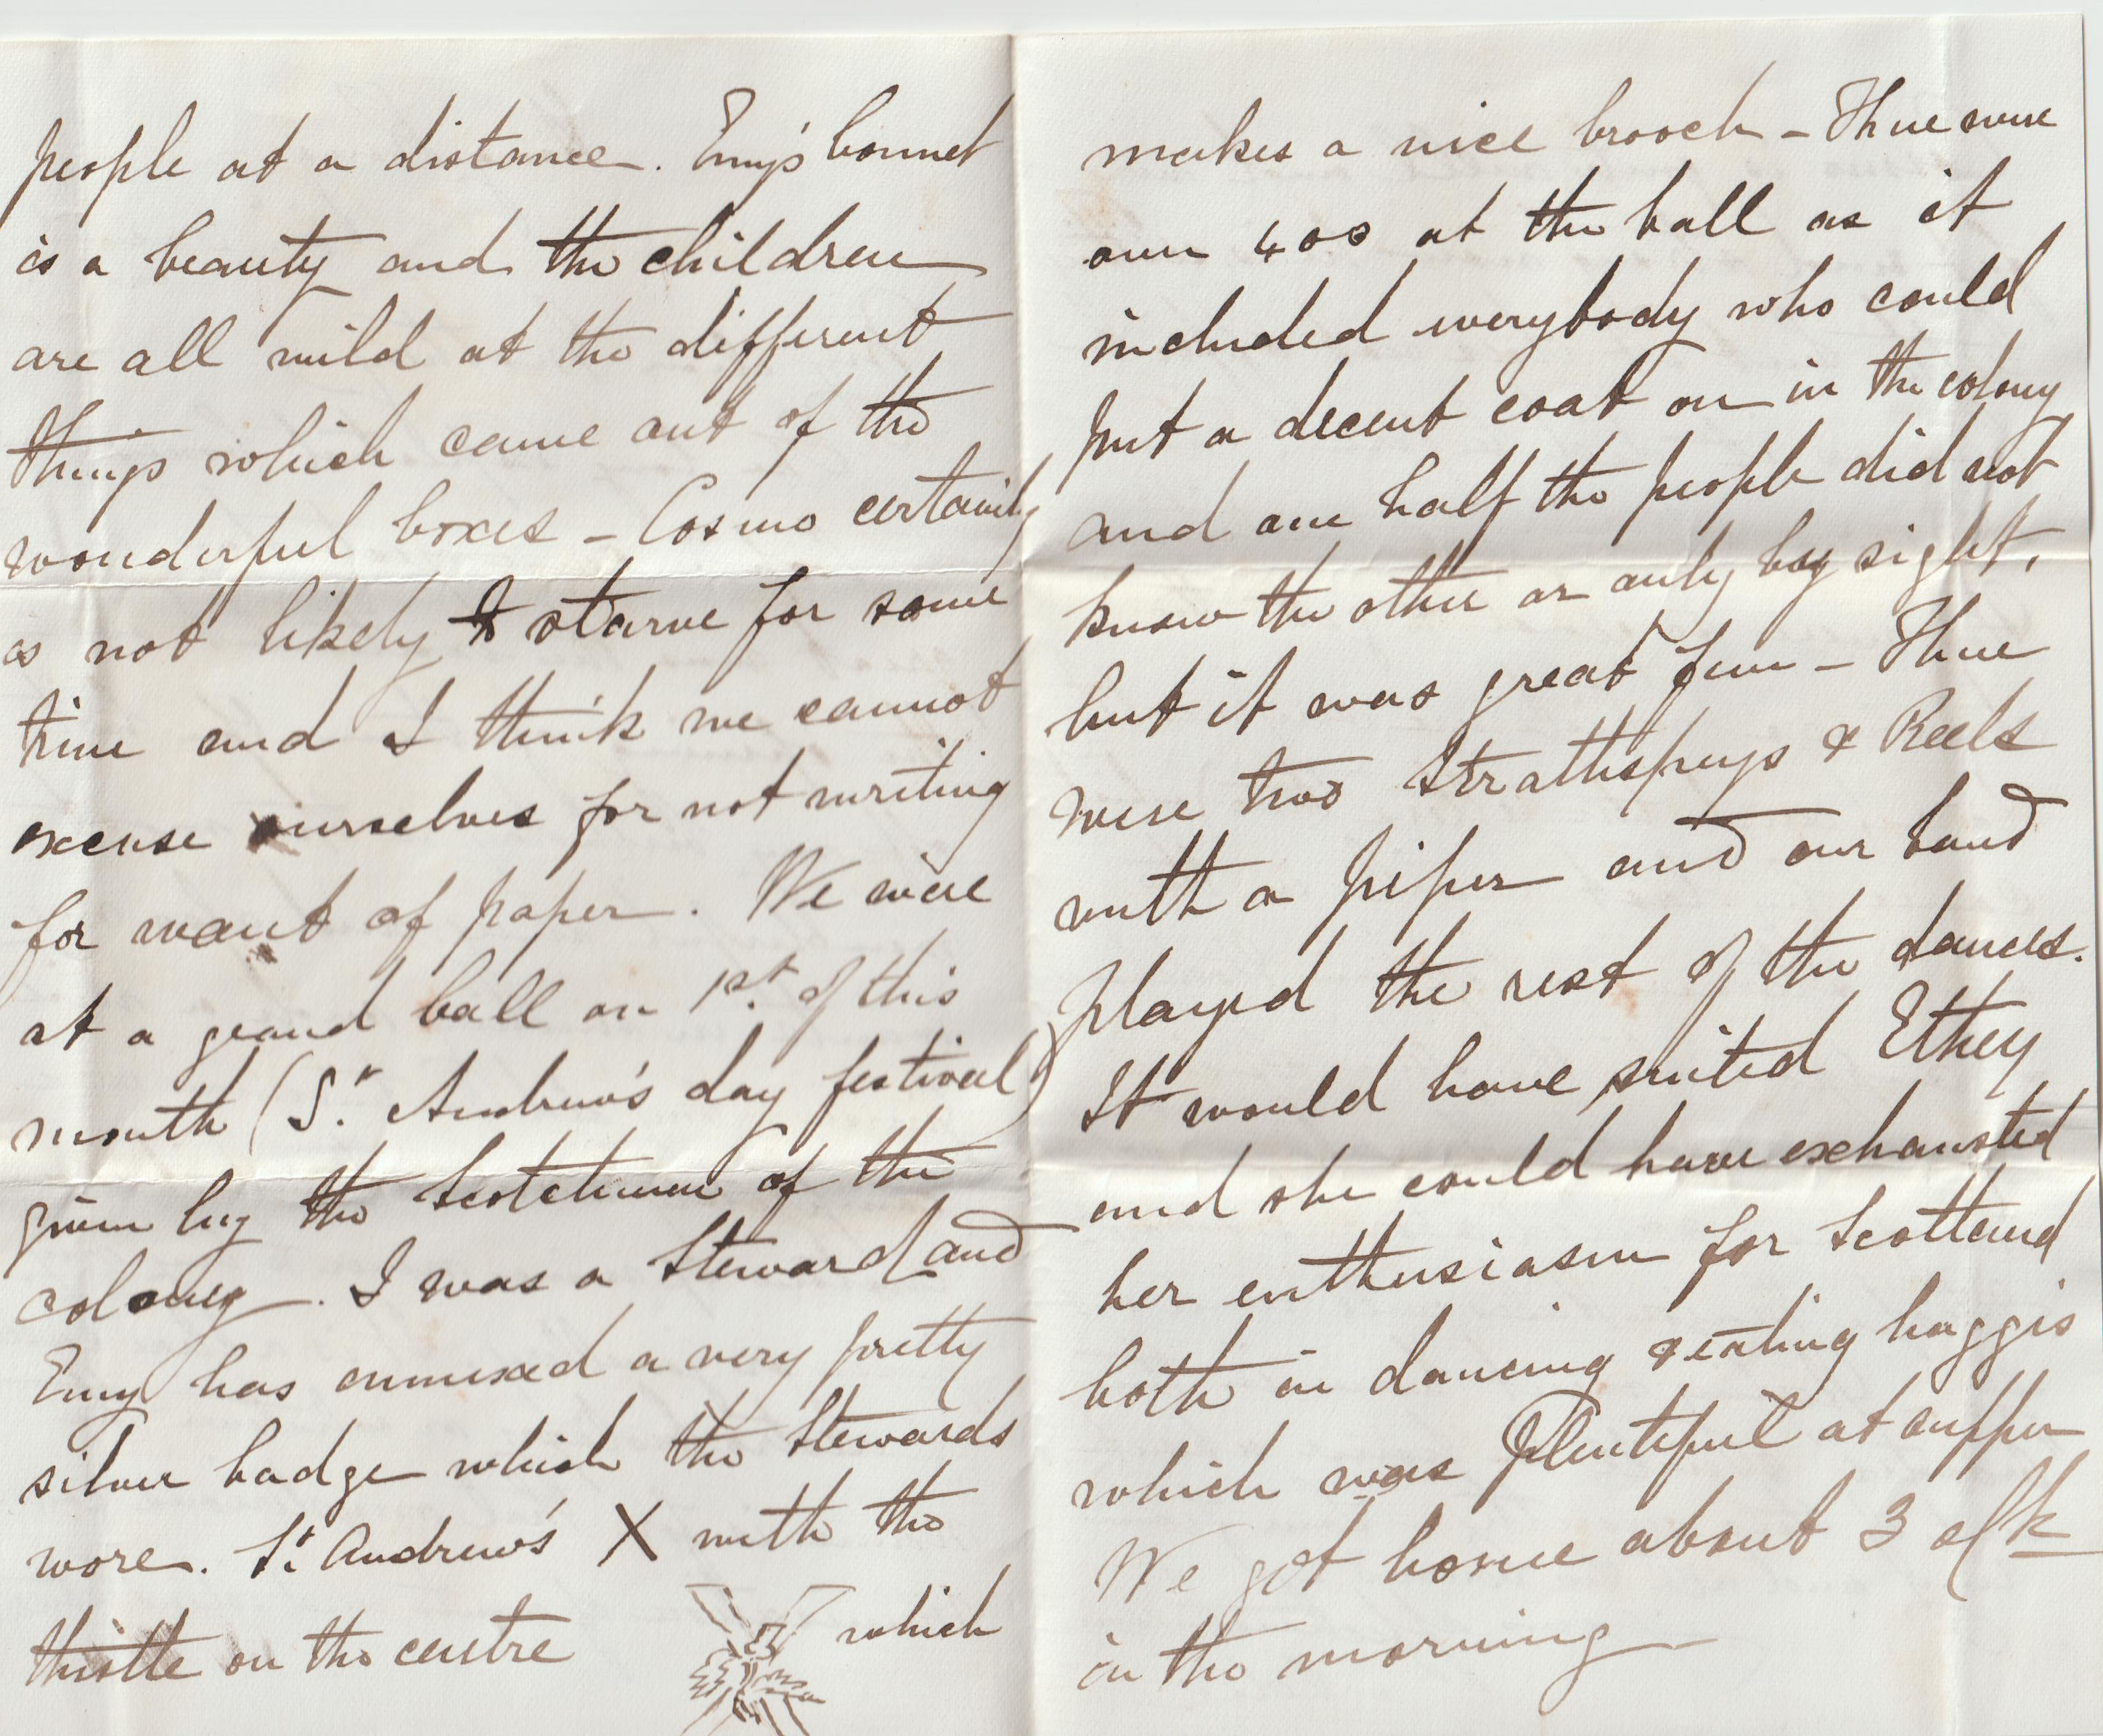 people at a distance. Emy's bonnet
is a beauty and the children
are all wild at the different
things which came out of the
wonderful boxes – Cosmo certainly
is not likely to starve for some
time and I think we cannot
excuse ourselves for not writing
for want of paper. We were
at a grand ball on 1st. of this
month (St. Andrew's day festival)
given by the Scotchmen of the
colony. I was a Steward and
Emy has annexed a very pretty
silver badge which the Stewards
wore. St. Andrew's X with the
thistle on the centre which
makes a nice brooch – There were
over 400 at the ball as it
included everybody who could
put a decent coat on in the colony
and one half the people did not
know the other or only by sight,
but it was great fun – There
were two Strathspeys & Reels
with a piper and our band
played the rest of the dances.
It would have suited Ethey
and she could have exhausted
her enthusiasm for Scotland
both in dancing & eating haggis
which was plentiful at supper
We got home about 3 o/k
in the morning –